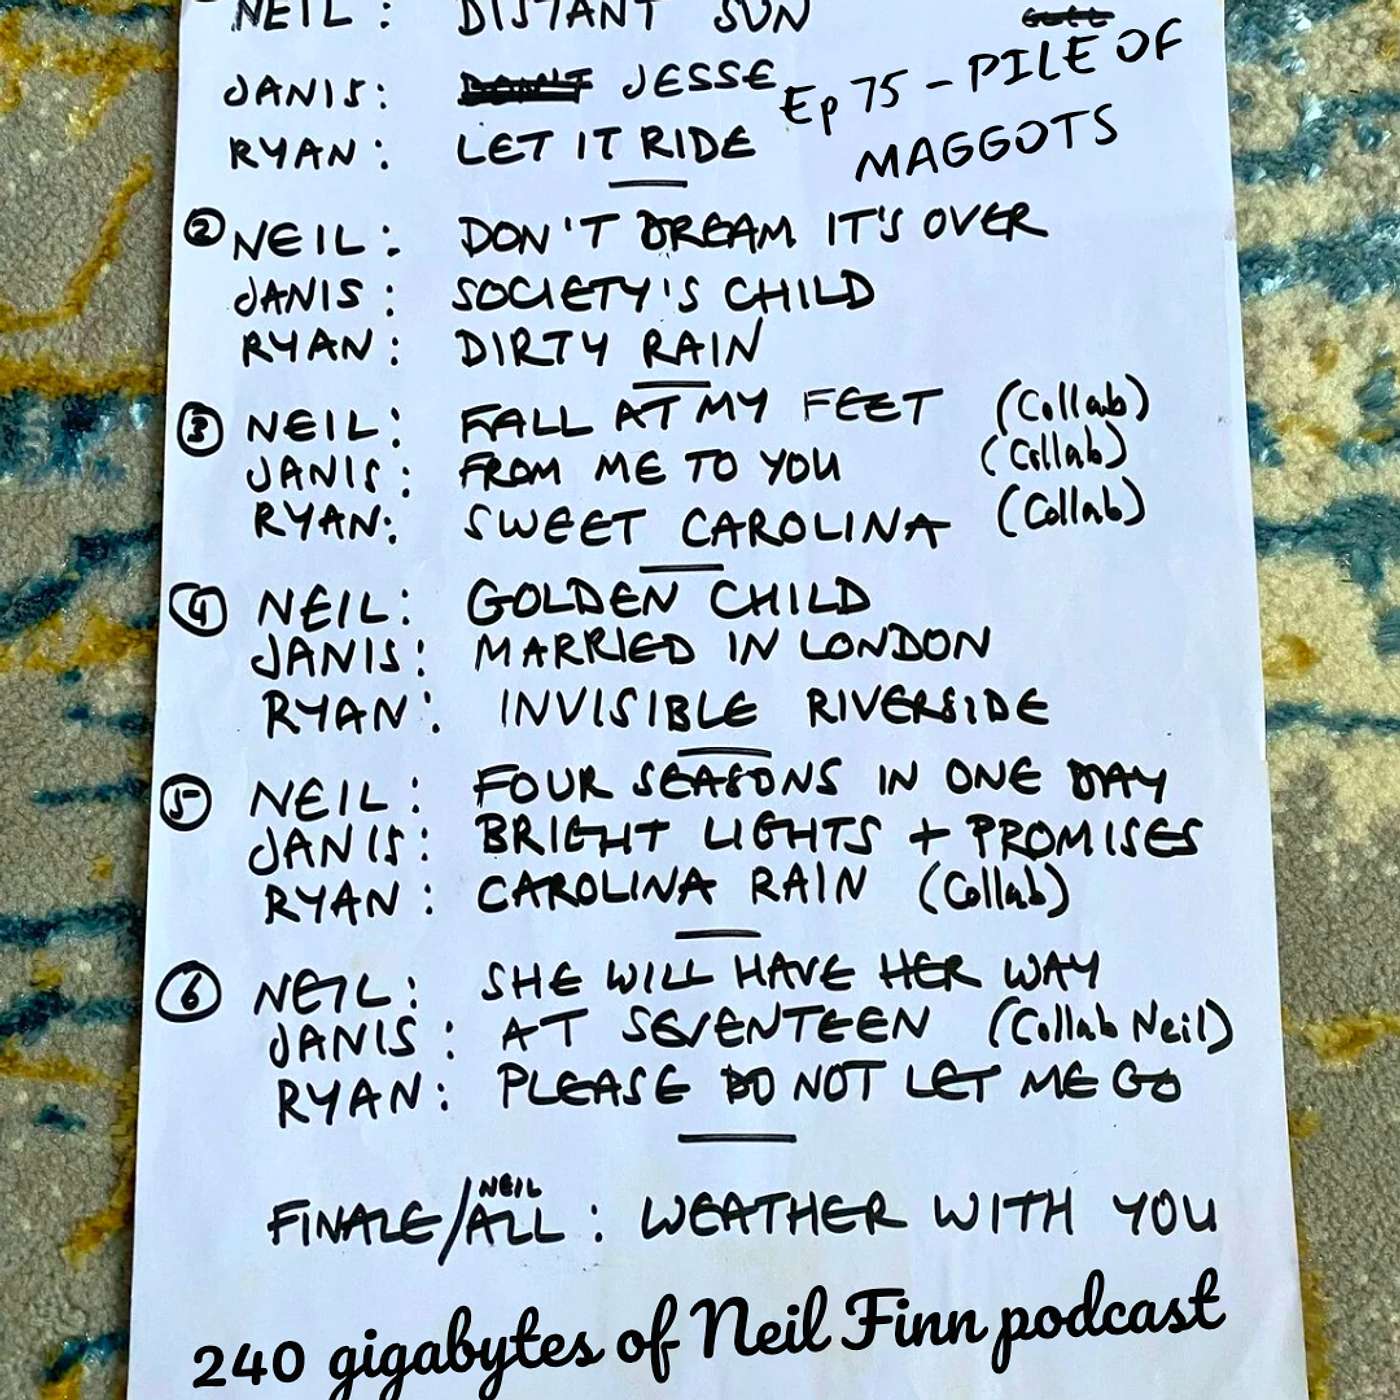 NEIL: DISTANT SUN
JANIS: JESSE
Ep 75 - PILE OF
MAGGOTS
RYAN: LET IT RIDE
2 NEIL: DON'T DREAM IT'S OVER
JANIS: SOCIETY'S CHILD
RYAN: DIRTY RAIN
3 NEIL: FALL AT MY FEET (Collab)
JANIS: FROM ME TO YOU (Collab)
RYAN: SWEET CAROLINA (Collab)
4 NEIL: GOLDEN CHILD
JANIS: MARRIED IN LONDON
RYAN: INVISIBLE RIVERSIDE
5 NEIL: FOUR SEASONS IN ONE DAY
JANIS: BRIGHT LIGHTS + PROMISES
RYAN: CAROLINA RAIN (Collab)
6 NEIL: SHE WILL HAVE HER WAY
JANIS: AT SEVENTEEN (Collab Neil)
RYAN: PLEASE DO NOT LET ME GO
NEIL
FINALE/ALL: WEATHER WITH YOU
240 gigabytes of Neil Finn podcast